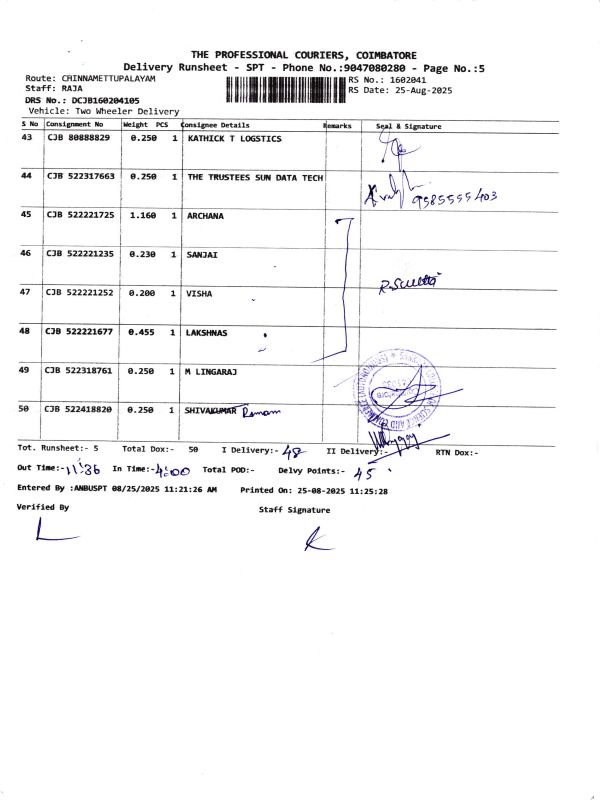 THE PROFESSIONAL COURIERS, COIMBATORE
Delivery Runsheet - SPT - Phone No.:9047080280 - Page No.:5
Route: CHINNAMETTUPALAYAM RS No.: 1602041
Staff: RAJA RS Date: 25-Aug-2025
DRS No.: DCJB160204105
Vehicle: Two Wheeler Delivery
S No Consignment No Weight PCS Consignee Details Remarks Seal & Signature
43 CJB 80888829 0.250 1 KATHICK T LOGSTICS
44 CJB 522317663 0.250 1 THE TRUSTEES SUN DATA TECH
9585555403
45 CJB 522221725 1.160 1 ARCHANA
46 CJB 522221235 0.230 1 SANJAI
47 CJB 522221252 0.200 1 VISHA
48 CJB 522221677 0.455 1 LAKSHNAS
49 CJB 522318761 0.250 1 M LINGARAJ
50 CJB 522418820 0.250 1 SHIVAKUMAR
Tot. Runsheet:- 5 Total Dox:- 50 I Delivery:- 48 II Delivery:- RTN Dox:-
Out Time:- 11:36 In Time:- 4:00 Total POD:- Delvy Points:- 45
Entered By :ANBUSPT 08/25/2025 11:21:26 AM Printed On: 25-08-2025 11:25:28
Verified By Staff Signature